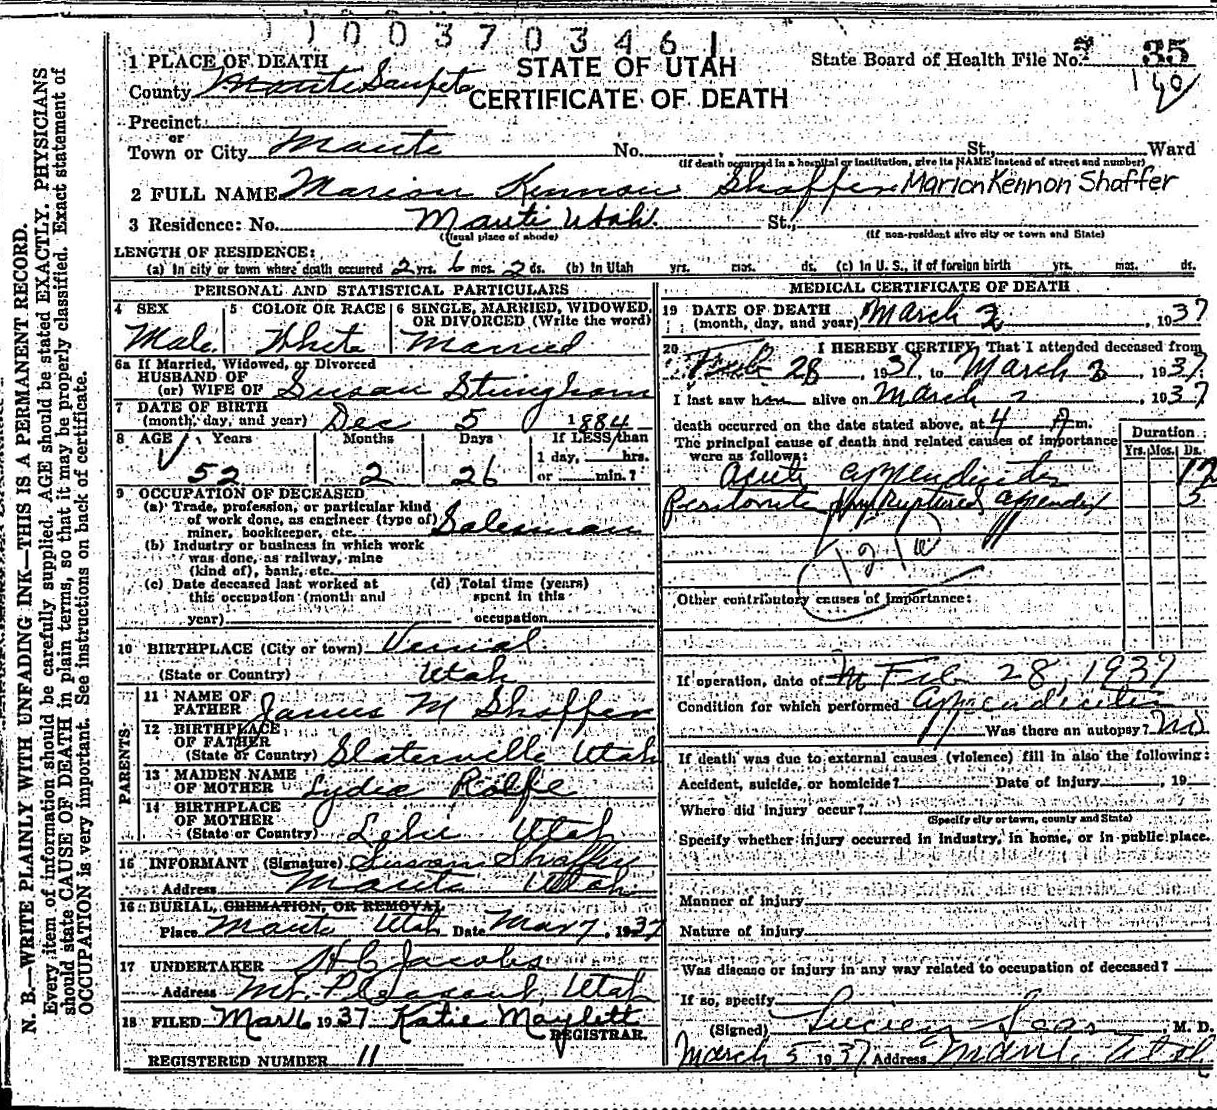 1 1 0 0 3 7 0 3 4 6 1
STATE OF UTAH
CERTIFICATE OF DEATH
State Board of Health File No. 35
140
1 PLACE OF DEATH
County Manti Sanpete
Precinct
or
Town or City Manti No. St., Ward
(If death occurred in a hospital or institution, give its NAME instead of street and number)
2 FULL NAME Marion Kennon Shaffer Marion Kennon Shaffer
3 Residence: No. Manti Utah. St.,
(Usual place of abode) (If non-resident give city or town and State)
LENGTH OF RESIDENCE:
(a) In city or town where death occurred 2 yrs. 6 mos. 2 ds. (b) In Utah yrs. mos. ds. (c) In U. S., if of foreign birth yrs. mos. ds.
PERSONAL AND STATISTICAL PARTICULARS
4 SEX 5 COLOR OR RACE 6 SINGLE, MARRIED, WIDOWED, OR DIVORCED (Write the word)
Male White Married
6a If Married, Widowed, or Divorced
HUSBAND OF
(or) WIFE OF Susan Stringham
7 DATE OF BIRTH
(month, day, and year) Dec 5 1884
8 AGE Years Months Days If LESS than
1 day, hrs.
52 2 26 or min.?
9 OCCUPATION OF DECEASED
(a) Trade, profession, or particular kind
of work done, as engineer (type of)
miner, bookkeeper, etc. Salesman
(b) Industry or business in which work
was done, as railway, mine
(kind of), bank, etc.
(c) Date deceased last worked at (d) Total time (years)
this occupation (month and spent in this
year) occupation
10 BIRTHPLACE (City or town) Vernal
(State or Country) Utah
PARENTS
11 NAME OF
FATHER James M Shaffer
12 BIRTHPLACE
OF FATHER
(State or Country) Slaterville Utah
13 MAIDEN NAME
OF MOTHER Lydia Rolfe
14 BIRTHPLACE
OF MOTHER
(State or Country) Lehi Utah
15 INFORMANT (Signature) Susan Shaffer
Address Manti Utah
16 BURIAL, CREMATION, OR REMOVAL
Place Manti Utah Date Mar 7, 1937
17 UNDERTAKER H C Jacobs
Address Mt. Pleasant, Utah
18 FILED Mar 6 1937 Katie Maylett
REGISTRAR.
REGISTERED NUMBER 11
MEDICAL CERTIFICATE OF DEATH
19 DATE OF DEATH
(month, day, and year) March 2, 1937
20 I HEREBY CERTIFY, That I attended deceased from
Feb 28, 1937, to March 2, 1937.
I last saw him alive on March 2 1937
death occurred on the date stated above, at 4 P m.
The principal cause of death and related causes of importance
were as follows:
Duration
Yrs. Mos. Ds.
Acute appendicitis 12
Peritonitis from Ruptured appendix 5
Other contributory causes of importance:
If operation, date of Feb 28, 1937
Condition for which performed Appendicitis
Was there an autopsy? No
If death was due to external causes (violence) fill in also the following:
Accident, suicide, or homicide? Date of injury , 19
Where did injury occur?
(Specify city or town, county and State)
Specify whether injury occurred in industry, in home, or in public place.
Manner of injury
Nature of injury
Was disease or injury in any way related to occupation of deceased?
If so, specify
(Signed) Lucien Sears, M. D.
March 5 1937 Address Manti, Utah
N. B.—WRITE PLAINLY WITH UNFADING INK—THIS IS A PERMANENT RECORD.
Every item of information should be carefully supplied. AGE should be stated EXACTLY. PHYSICIANS
should state CAUSE OF DEATH in plain terms, so that it may be properly classified. Exact statement of
OCCUPATION is very important. See instructions on back of certificate.